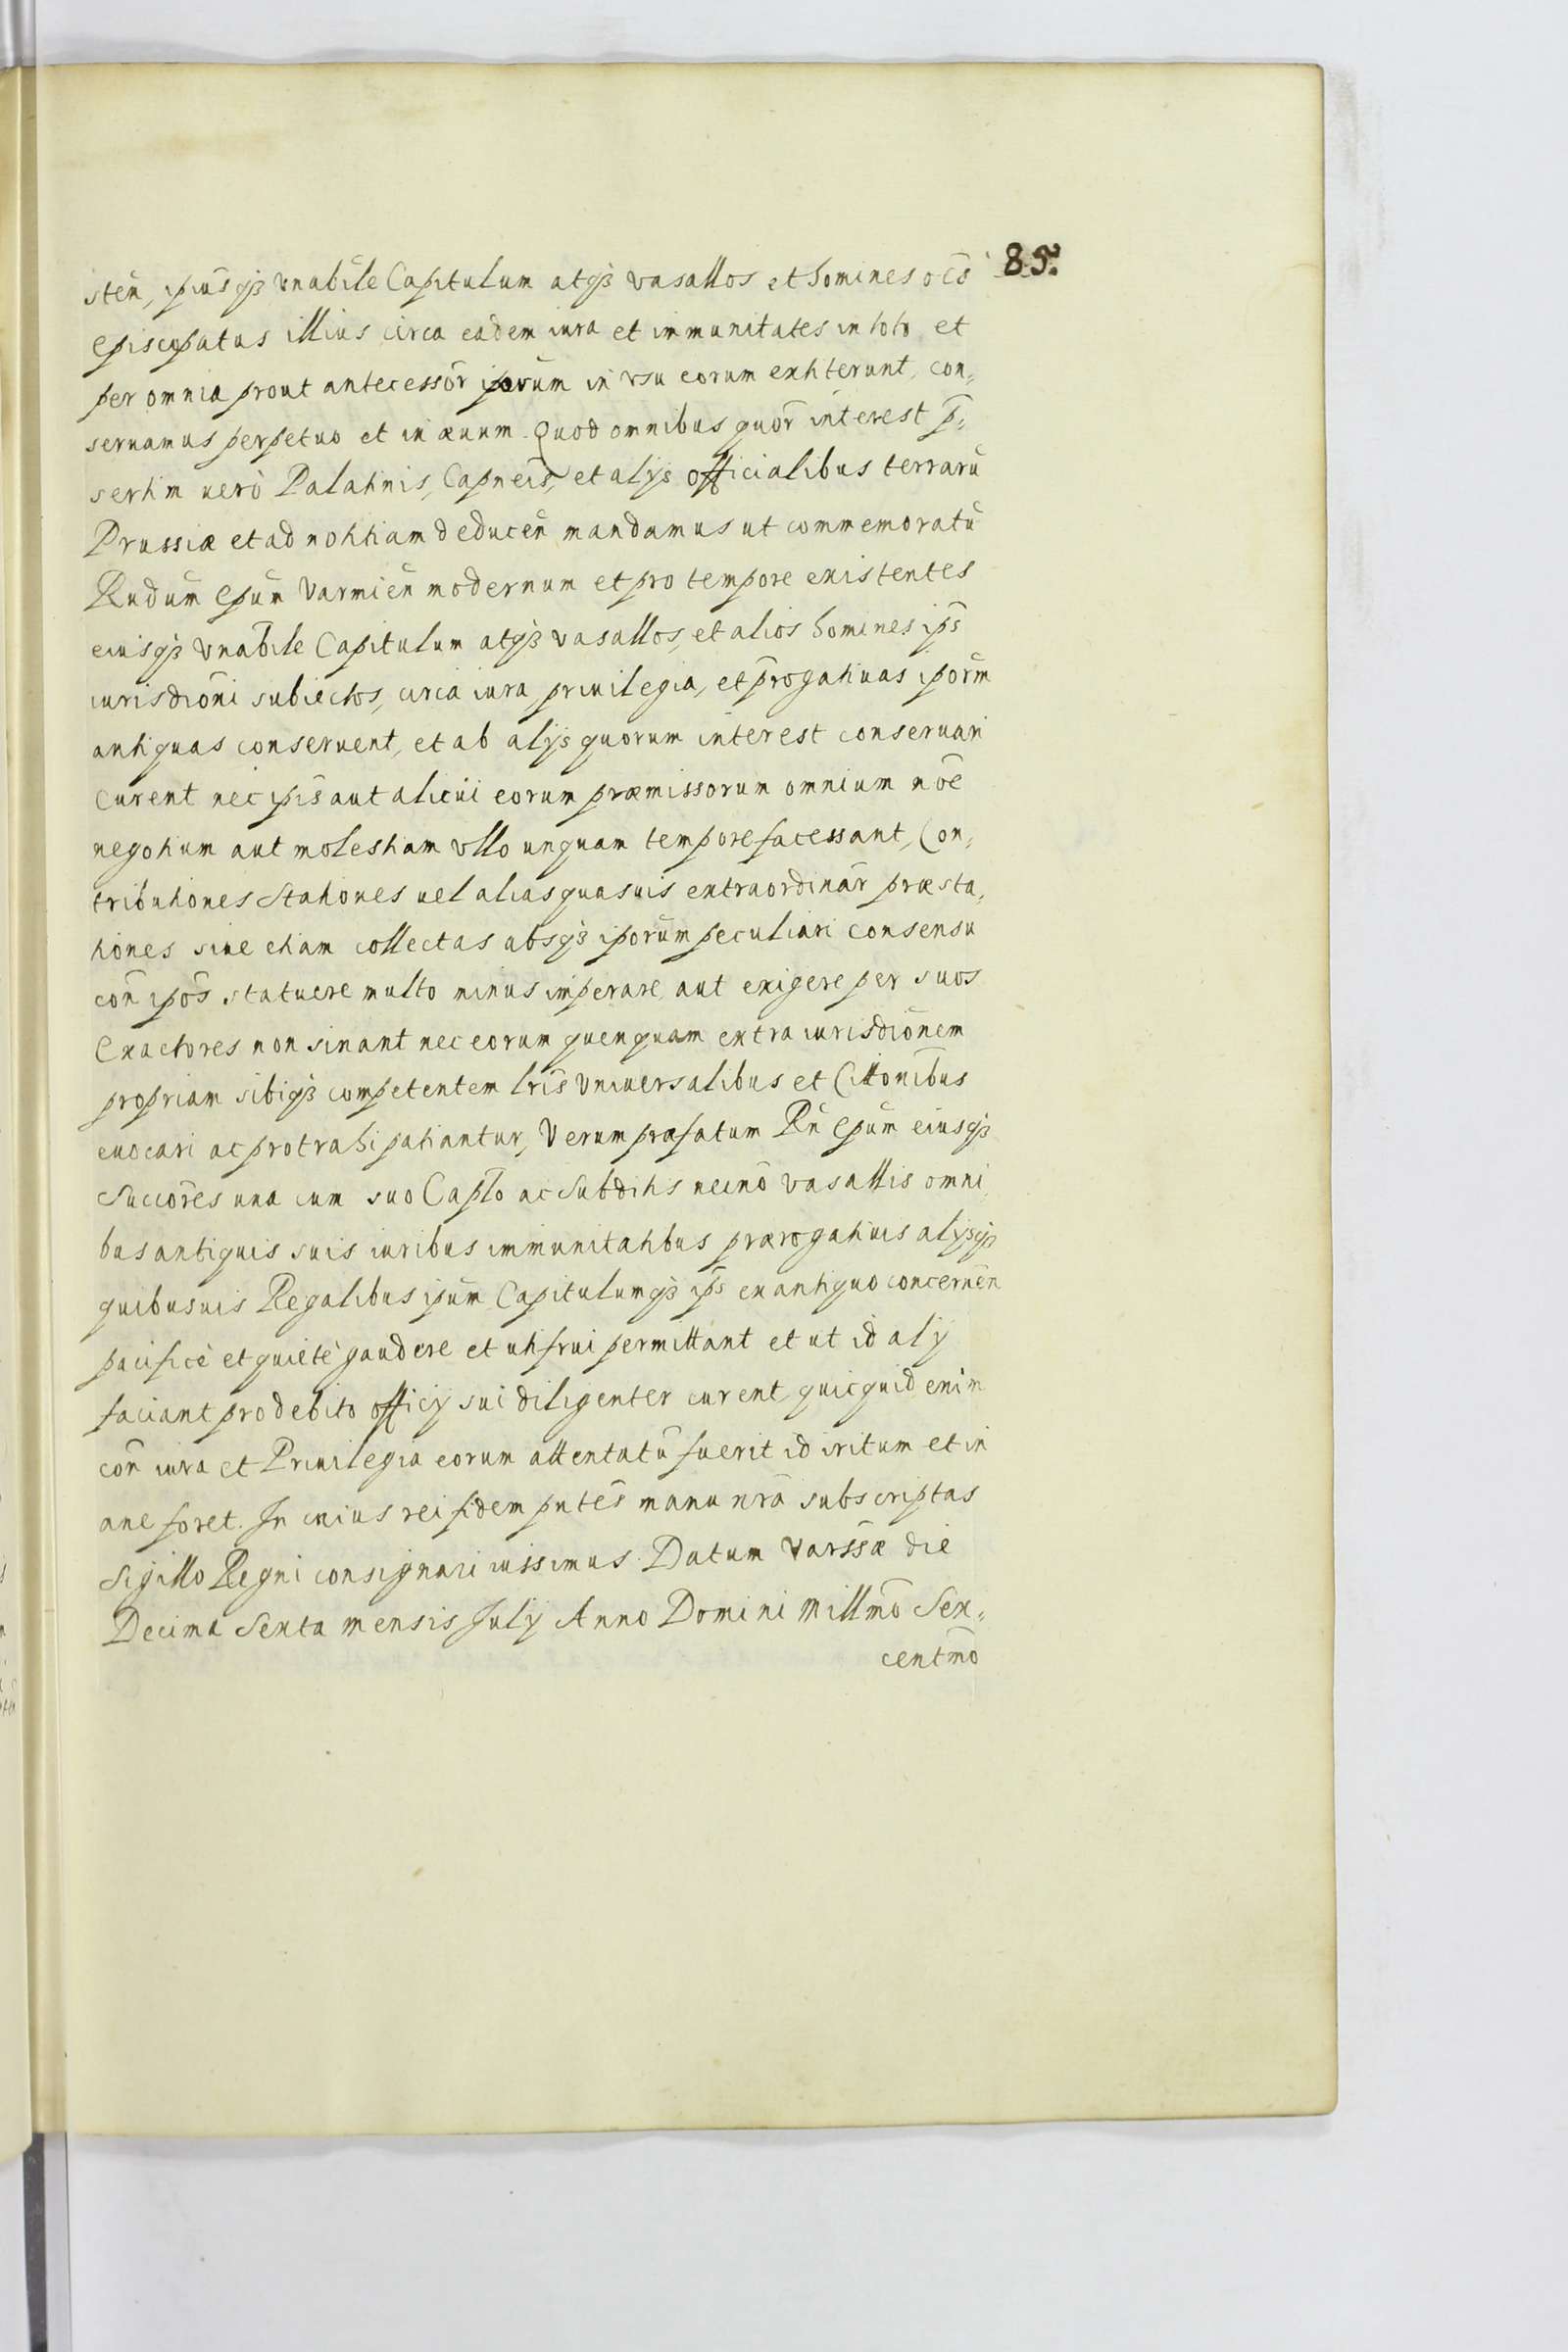 85.
isten̄, ipiūsqȝ vnabīle Capitulum atqȝ vasallos et homines oēs
episcopatus illius circa eadem iura et immunitates in toto et
per omnia prout antecessōr iporūm in vsu eorum extiterunt, con„
seruamus perpetuo et in æuum. Quod omnibus quōr interest p̄„
sertim uerò Palatinis, Capneis, et alijs officialibus terrarū
Prussiæ et ad notitiam deducen̄ mandamus ut commemoratū
Rndūm Epūm Varmien̄ modernum et pro tempore existentes
eiusqȝ vnabīle Capitulum atqȝ vasallos, et alios homines ip̄s
iurisdiōni subiectos, circa iura, priuilegia, et p̄rogatiuas ipōrm
antiquas conseruent, et ab alijs quorum interest conseruari
curent nec ip̄is aut alicui eorum præmissorum omnium nōe
negotium aut molestiam vllo unquam tempore facessant, Con„
tributiones Stationes uel alias quasuis extraordinār præsta„
tiones siue etiam collectas absqȝ iporūm peculiari consensu
con̄ ipōs statuere multo minus imperare aut exigere per suos
Exactores non sinant nec eorum quenquam extra iurisdiōnem
propriam sibiqȝ competentem lrīs Vniuersalibus et Cittōnibus
euocari ac protrahi patiantur, Verum præfatum Rn̄ Epūm eiusqȝ
Succōres una cum suo Caplo ac Subditis necnō vasallis omni
bus antiquis suis iuribus immunitatibus prærogatiuis alijsqȝ
quibusuis Regalibus ipūm Capitulumqȝ ip̄s ex antiquo concernēn
pacificè et quietè gaudere et uti frui permittant et ut id alij
faciant pro debito officij sui diligenter curent, quicquid enim
con̄ iura et Priuilegia eorum attentatū fuerit id iritum et in
ane foret. In cuius rei fidem pn̄tes manu nrā subscriptas
Sigillo Regni consignari iussimus. Datum Varssæ die
Decima Sexta mensis Julij Anno Domini Millmō Sex„
centmō